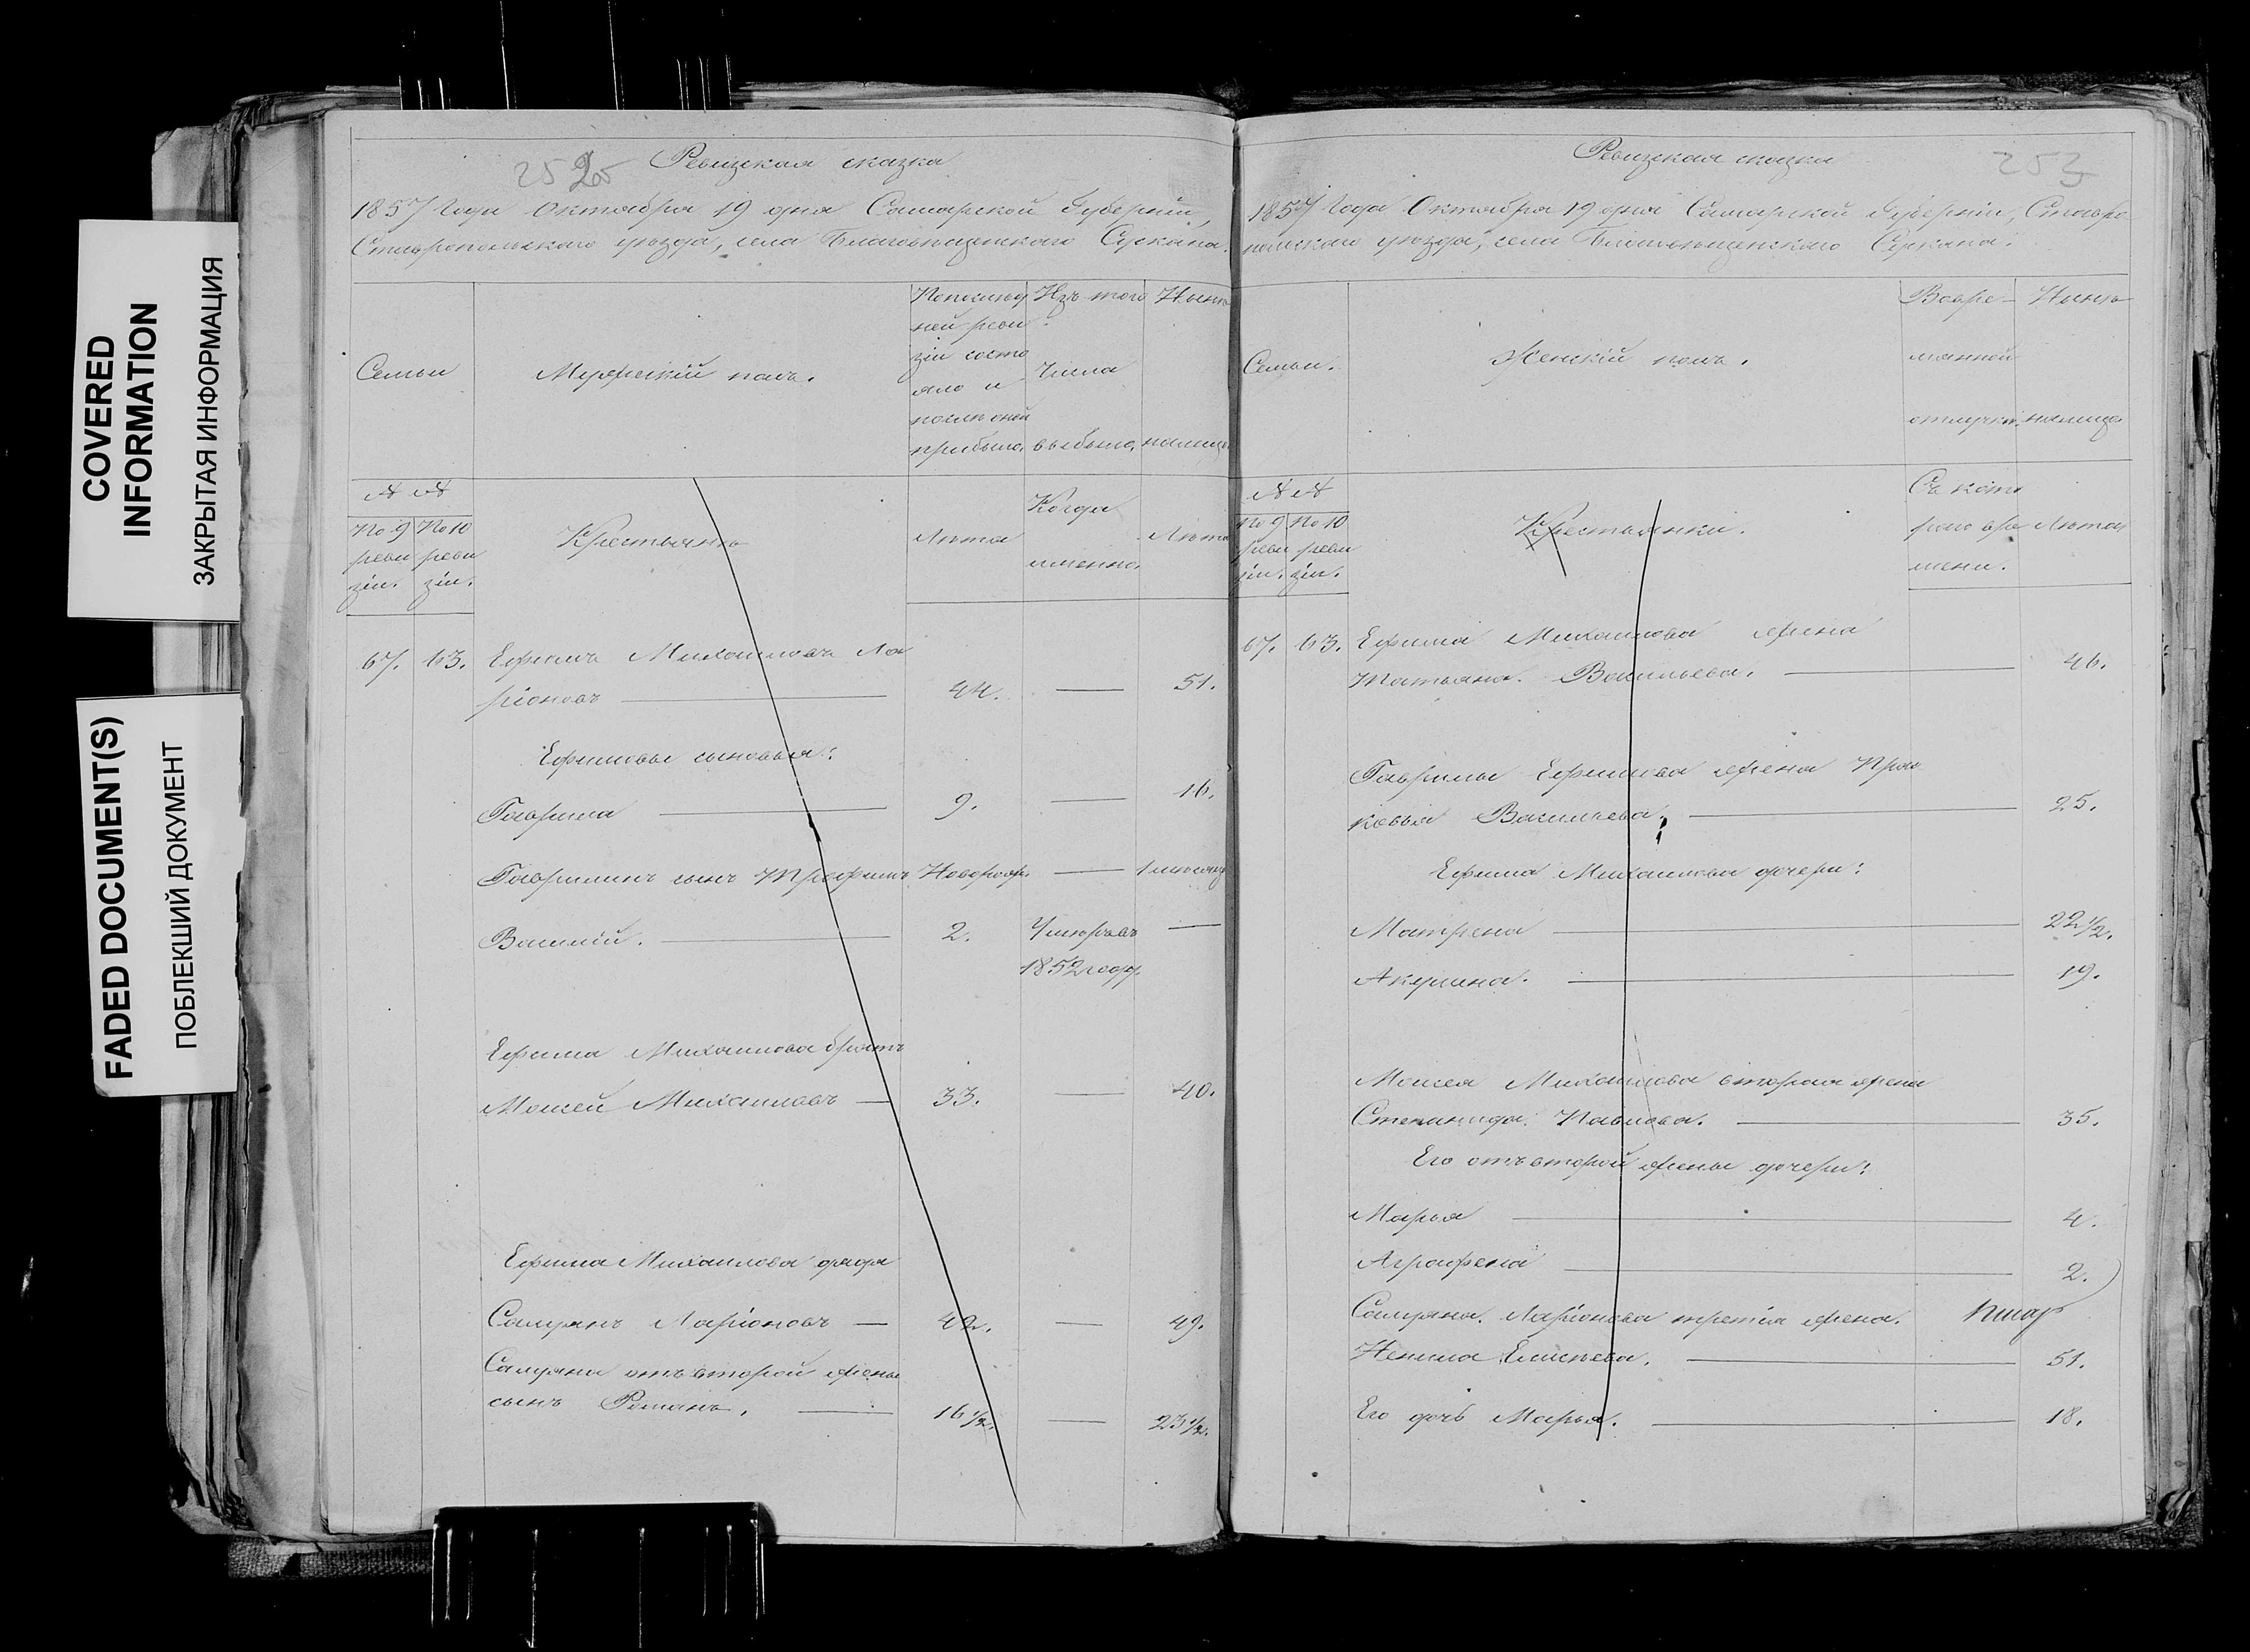 COVERED
INFORMATION
ЗАКРЫТАЯ ИНФОРМАЦИЯ
FADED DOCUMENT(S)
ПОБЛЕКШИЙ ДОКУМЕНТ
252
Ревизская сказка
1857 года Октября 19 дня Самарской Губерніи,
Ставропольскаго уѣзда, села Благовѣщенскаго Сускана.
Семьи
Мужескій полъ.
По послѣд
ней реви
зіи состо
яло и
послѣ оной
прибыло.
Изъ того
числа
выбыло.
Нынѣ
налицо.
№ №
По 9
реви
зіи.
По 10
реви
зіи.
Крестьянъ
Лѣта
Когда
именно.
Лѣта
67. 63. Ефимъ Михаиловъ Ла
ріоновъ 44. 51.
Ефимовы сыновья:
Гаврила 9. 16.
Гаврилинъ сынъ Новорож.
Василій. 2. Умеръ въ
1852 году.
Ефима Михаилова братъ
Моисей Михаиловъ 33. 40.
Ефима Михаилова дядя
Ларіоновъ 42. 49.
отъ второй жены
сынъ Романъ. 16 1/2. 23 1/2.
253
Ревизская сказка
1857 года Октября 19 дня Самарской Губерніи, Ставро
польскаго уѣзда, села Благовѣщенскаго Сускана.
Семьи.
Женскій полъ.
Во вре-
мянной
отлучке.
Нынѣ
налицо.
№ №
По 9
реви
зіи.
По 10
реви
зіи.
Крестьянки.
Съ кото
раго вре
мени.
Лѣта
67. 63. Ефима Михаилова жена
Татьяна Васильева. 46.
Гаврилы Ефимова жена Прас
ковья Васильева. 25.
Ефима Михаилова дочери:
Матрена 22 1/2.
Акулина. 19.
Моисея Михаилова вторая жена
Степанида Павлова. 35.
Его отъ второй жены дочери:
Марья 4.
Аграфена 2.
Ларіонова третія жена.
Елисѣева. 51.
Его дочь Марья. 18.